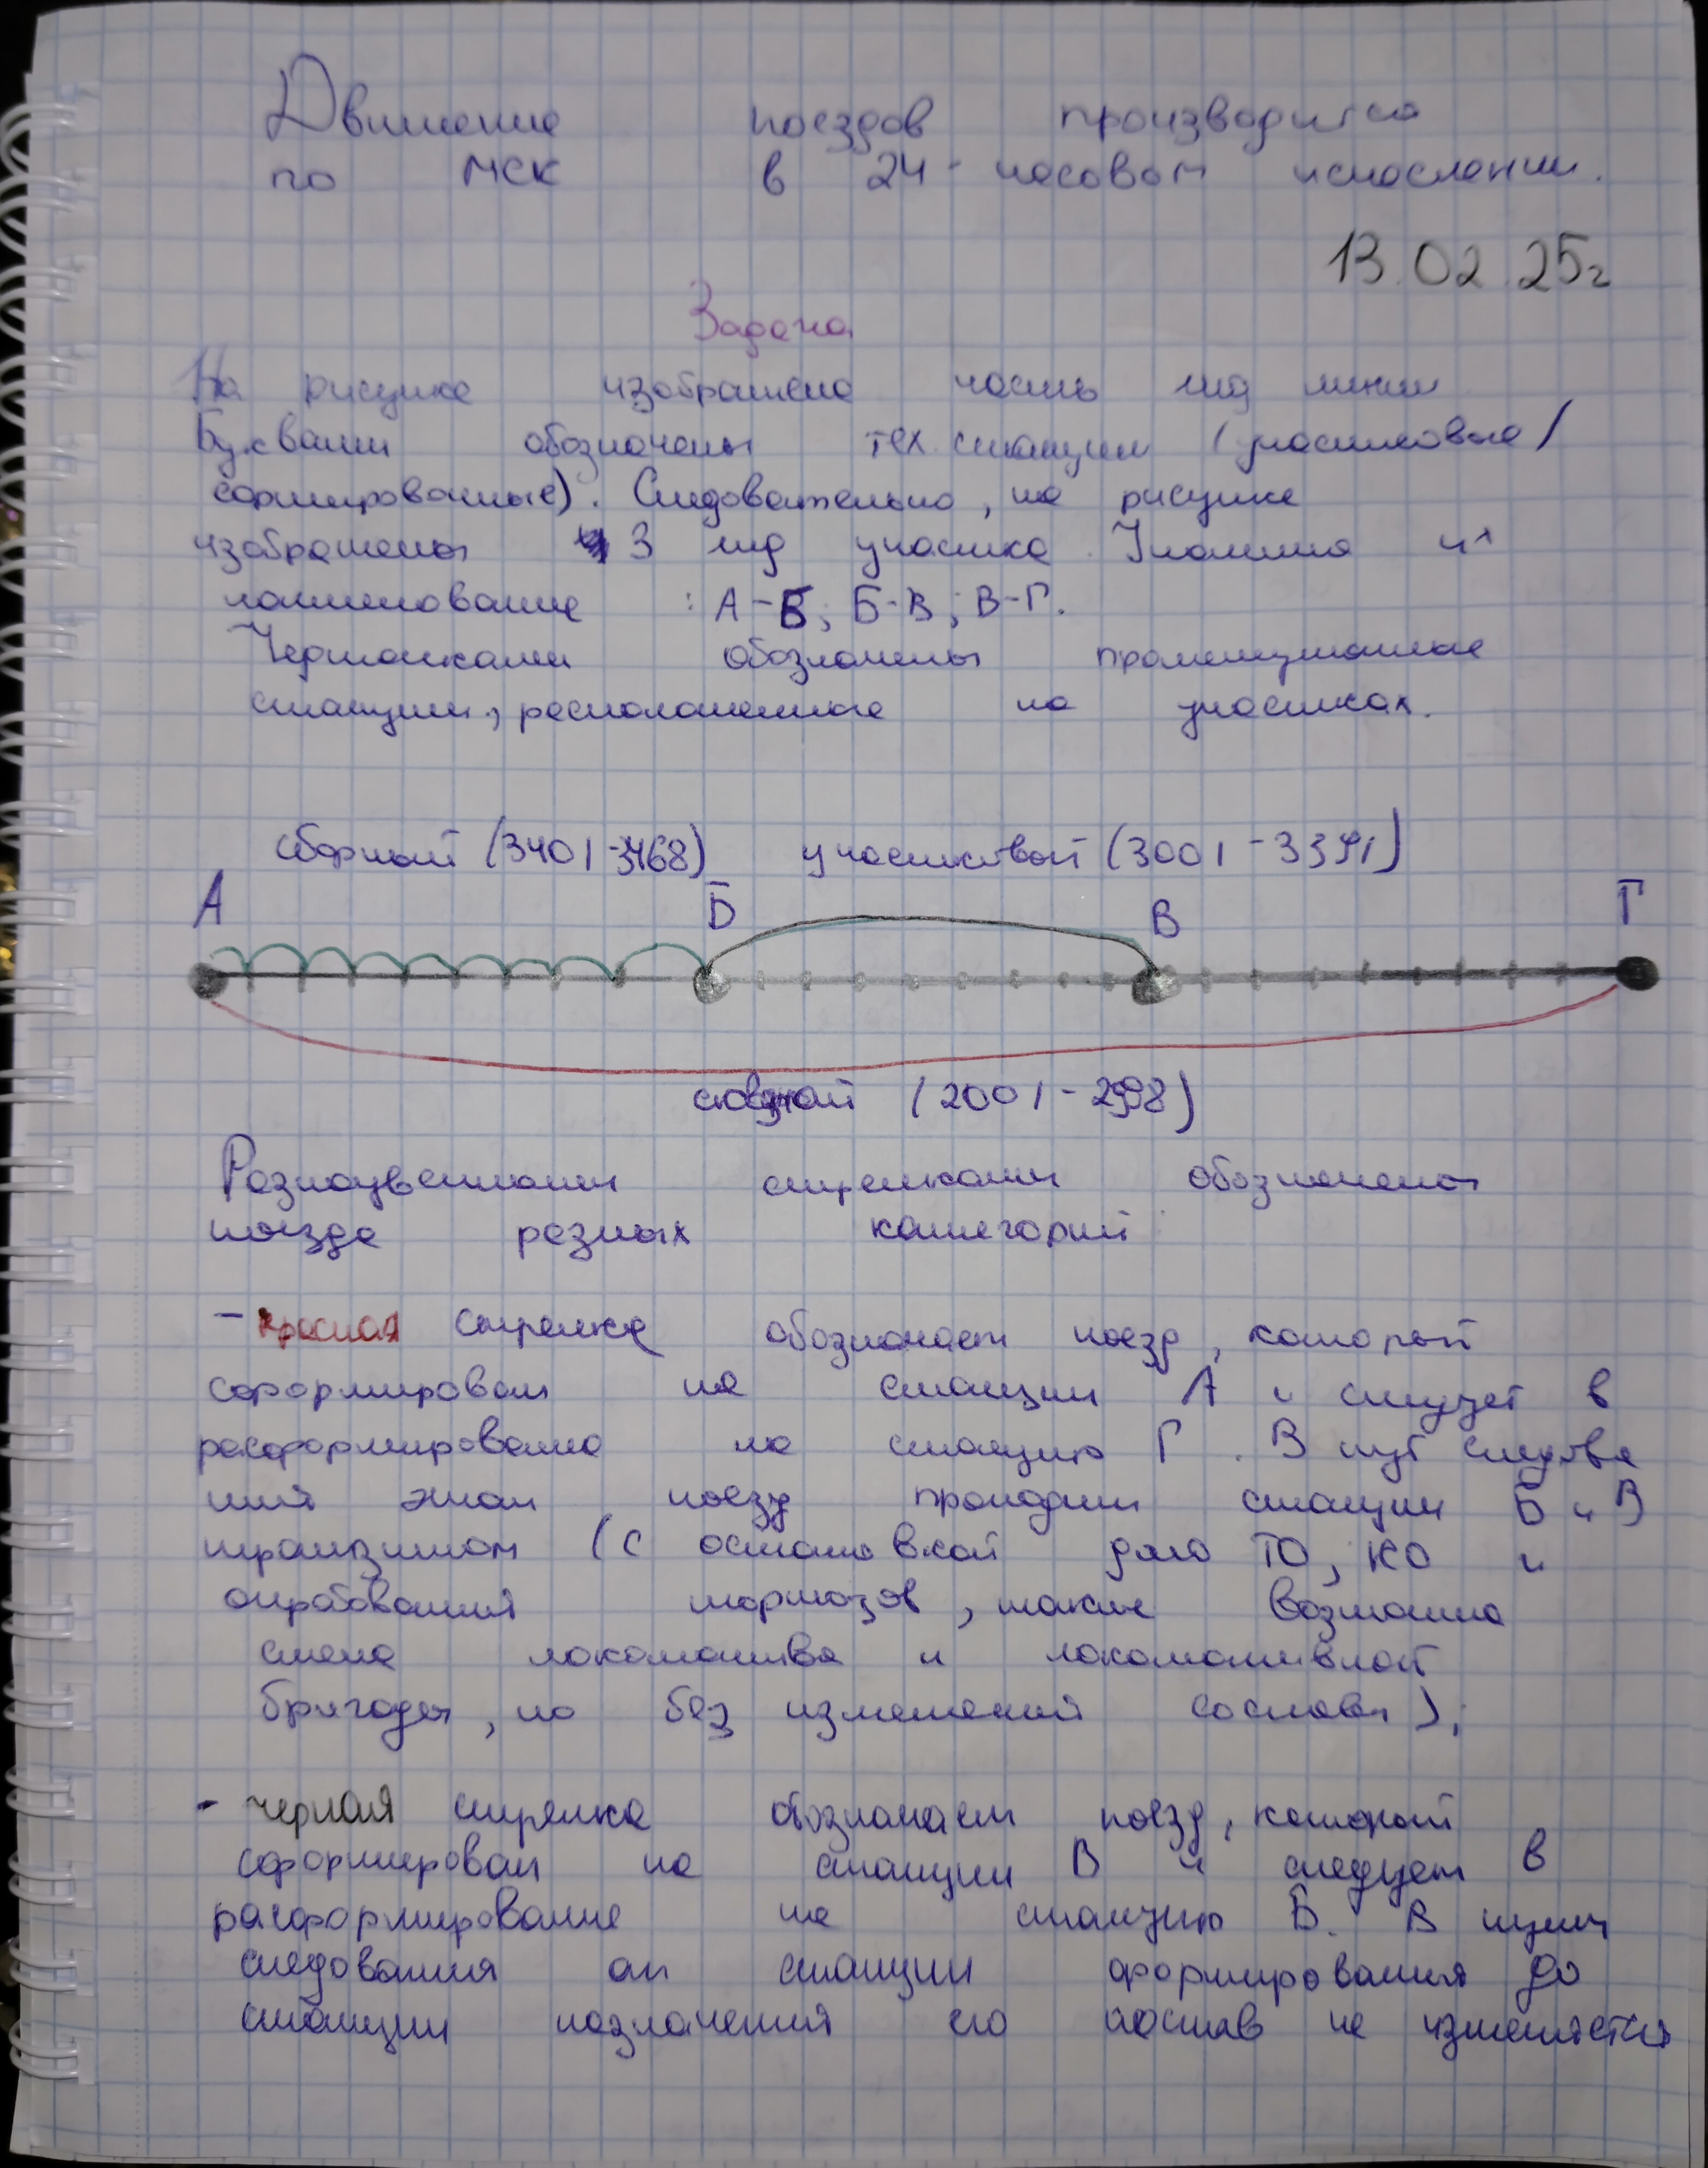 Движение поездов производится
по МСК в 24-часовом исчислении.
13.02.25г
Задача
На рисунке изображена часть жд линии
Буквами обозначены тех. станции (участковые/
сортировочные). Следовательно, на рисунке
изображены 3 жд участка. Укажите их
наименование : А-Б; Б-В; В-Г.
Черточками обозначены промежуточные
станции, расположенные на участках.
сборный (3401-3468) участковый (3001-3391)
А Б В Г
сквозной (2001-2998)
Разноцветными стрелками обозначены
поезда разных категорий:
- красная стрелка обозначает поезд, который
сформирован на станции А и следует в
расформирование на станцию Г. В пут следова
ния этот поезд проходит станции Б и В
транзитом (с остановкой для ТО, КО и
опробования тормозов, также возможна
смена локомотива и локомотивной
бригады, но без изменений состава);
- черная стрелка обозначает поезд, который
сформирован на станции В и следует в
расформирование на станцию Б. В пути
следования от станции формирования до
станции назначения его состав не изменяется